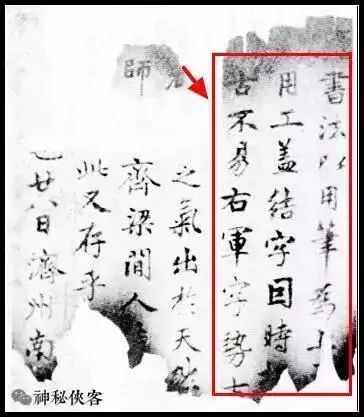 書法以用筆為上
用工盖結字因時
古不易右軍字勢古
之氣出於天然
師 齊梁間人
此又存乎
廿八日濟州南
神秘俠客